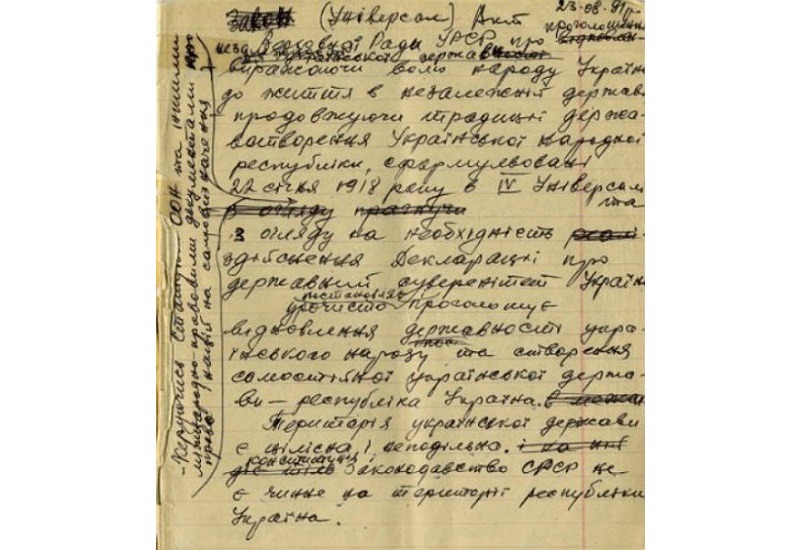 23-08-91 р.
Закон (Універсал) Акт
проголошення
Верховної Ради УРСР про
виражаючи волю народу України
до життя в незалежній державі
продовжуючи традиції держа-
вотворення Української народної
республіки, сформульовані
22 січня 1918 року в IV Універсалі
та
з огляду прагнучи
З огляду на необхідність
здійснення Декларації про
державний суверенітет України
урочисто проголошує
відновлення державності укра-
їнського народу та створення
самостійної української держа-
ви — республіка Україна.
Територія української держави
є цілісна і неподільна.
конституція і
Законодавство СРСР не
є чинне на території республіки
Україна.
- Керуючись Статутом ООН та іншими
міжнародно-правовими документами про
право націй на самовизначення